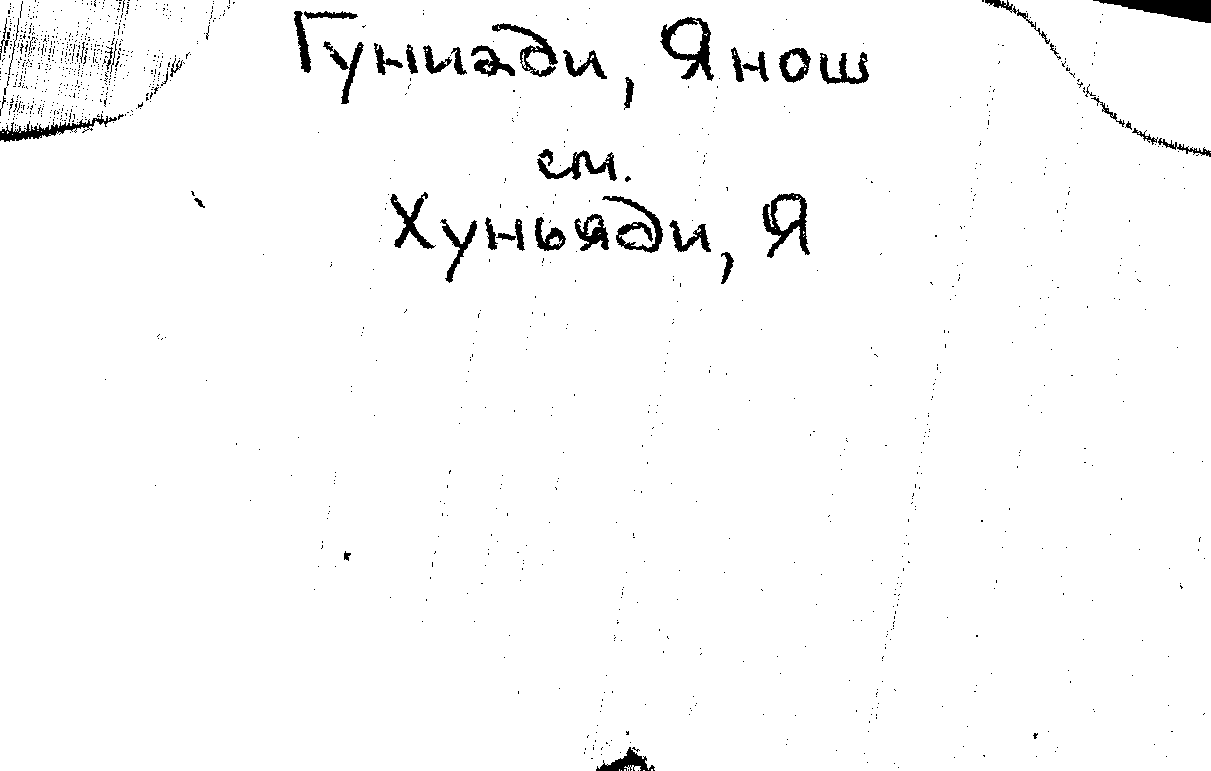 Гуниади, Янош
см.
Хуньяди, Я